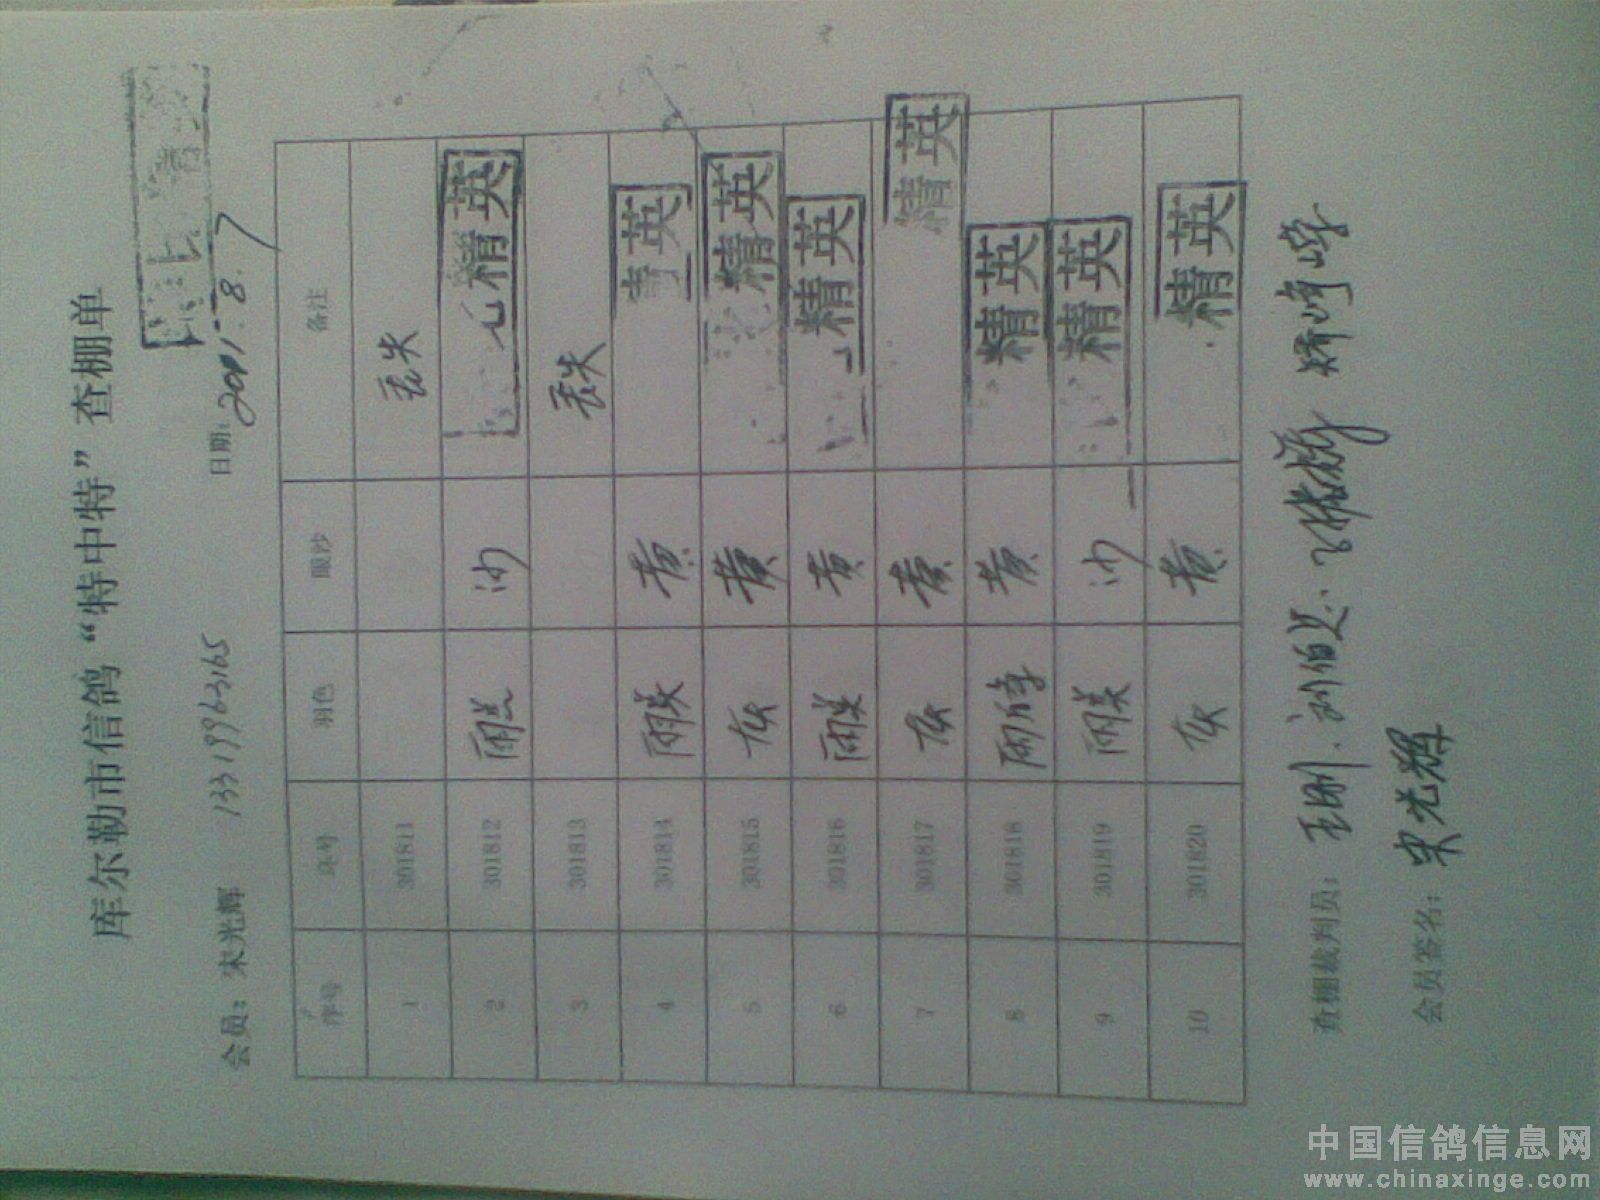 库尔勒市信鸽“特中特”查棚单
会员：宋光辉 13319963165 日期：2011.8.7
序号 环号 羽色 眼沙 备注
1 301811 丢失
2 301812 雨点 沙 精英
3 301813 丢失
4 301814 黄 英
5 301815 灰 黄 精英
6 301816 雨点 黄 精英
7 301817 灰 黄 精英
8 301818 黄 精英
9 301819 沙 精英
10 301820 灰 黄 精英
查棚裁判员：
会员签名：宋光辉
中国信鸽信息网
www.chinaxinge.com